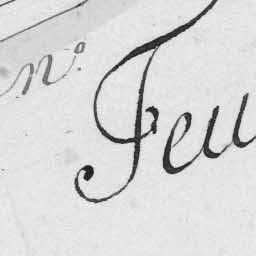 N.º
Feu